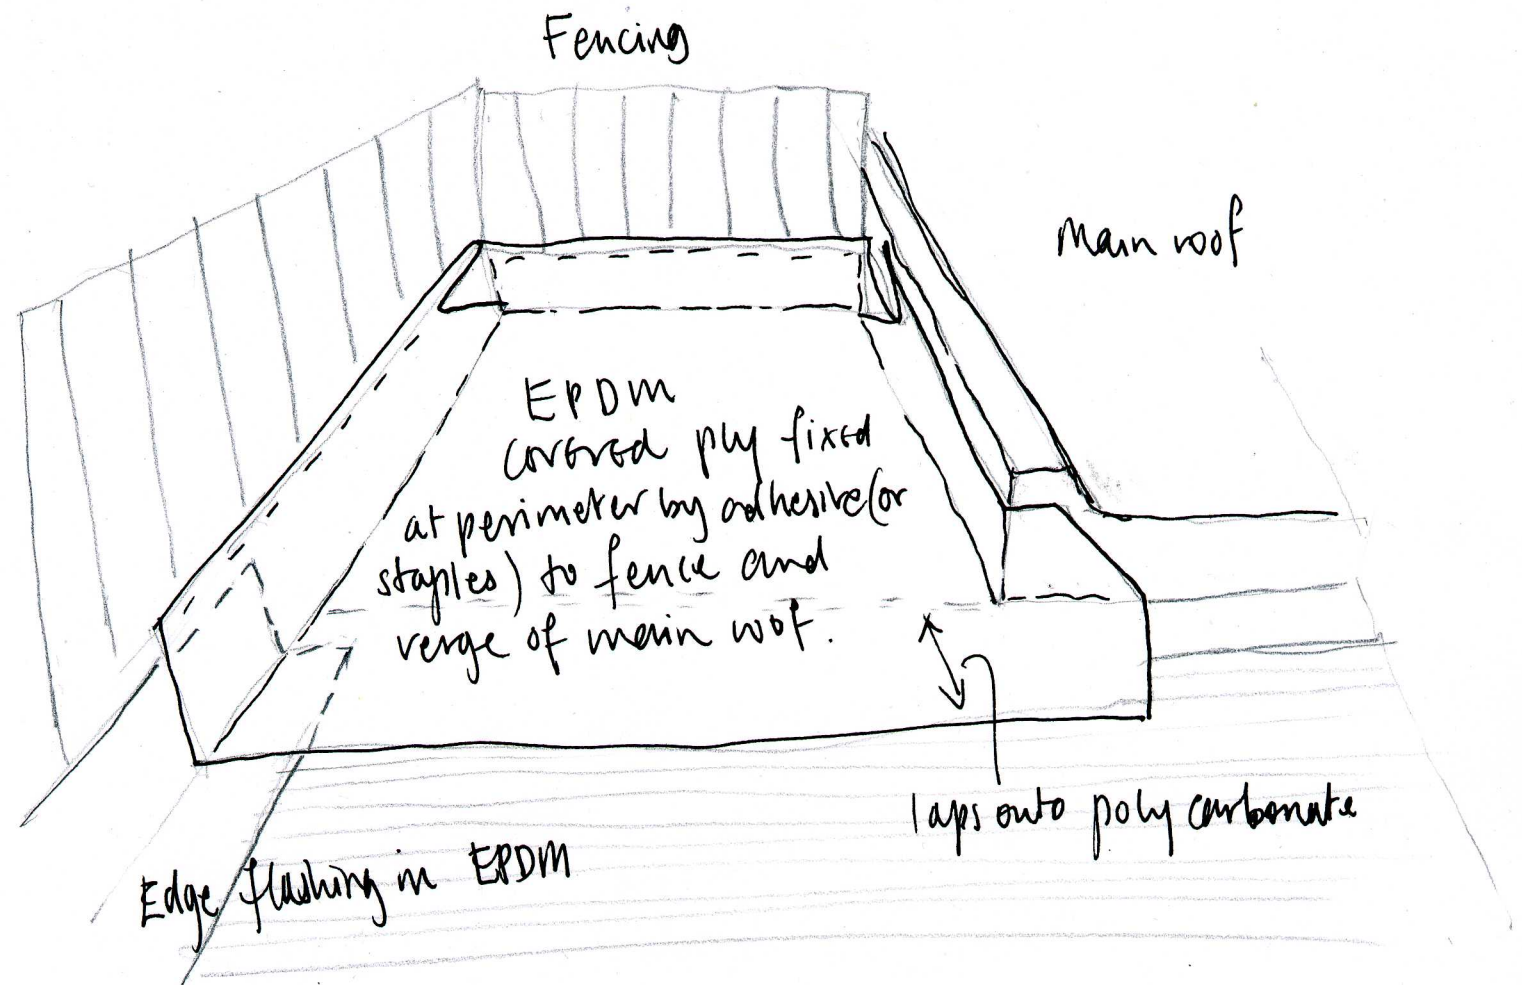 Fencing
Main roof
EPDM
covered ply fixed
at perimeter by adhesive (or
staples) to fence and
verge of main roof.
laps onto polycarbonate
Edge flashing in EPDM